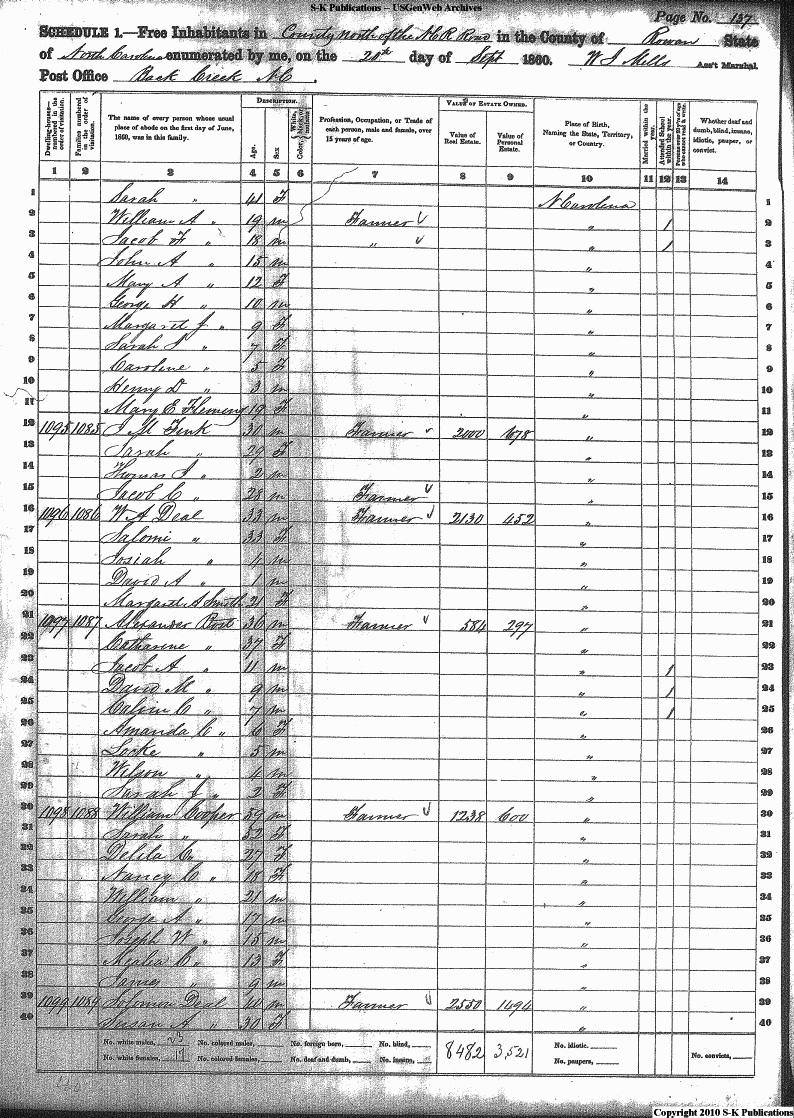 S-K Publications – USGenWeb Archives
Page No. 137
SCHEDULE 1.—Free Inhabitants in County north of the N C R Road in the County of Rowan State
of North Carolina enumerated by me, on the 20th day of Sept 1860. W J Mills Ass't Marshal.
Post Office Back Creek N C.
Dwelling-houses—numbered in the order of visitation. Families numbered in the order of visitation. The name of every person whose usual place of abode on the first day of June, 1860, was in this family. DESCRIPTION. Age. Sex. Color, Profession, Occupation, or Trade of each person, male and female, over 15 years of age. VALUE OF ESTATE OWNED. Value of Real Estate. Value of Personal Estate. Place of Birth, Naming the State, Territory, or Country. Married within the year. Attended School within the year. Whether deaf and dumb, blind, insane, idiotic, pauper, or convict.
1 2 3 4 5 6 7 8 9 10 11 12 13 14
1 Sarah " 41 F N Carolina 1
2 William A " 19 m Farmer " / 2
3 Jacob F " 18 m " " / 3
4 John A " 15 m " 4
5 Mary A " 12 F " 5
6 George H " 10 m " 6
7 Margaret J " 9 F " 7
8 Sarah J " 7 F " 8
9 Caroline " 5 F " 9
10 Henry D " 3 m " 10
11 Mary E Fleming 19 F " 11
12 1095 1085 J M Fink 30 m Farmer 2000 1678 " 12
13 Sarah " 29 F " 13
14 Thomas J " 2 m " 14
15 Jacob C " 28 m Farmer " 15
16 1096 1086 W A Deal 33 m Farmer 2130 452 " 16
17 Salomi " 33 F " 17
18 Josiah " 4 m " 18
19 David A " 1 m " 19
20 Margaret A Smith 21 F " 20
21 1097 1087 Alexander Post 36 m Farmer 584 297 " 21
22 Catharine " 37 F " 22
23 Jacob A " 11 m " / 23
24 David M " 9 m " / 24
25 Calvin C " 7 m " / 25
26 Amanda C " 6 F " 26
27 Locke " 5 m " 27
28 Wilson " 4 m " 28
29 Sarah J " 2 F " 29
30 1098 1088 William Cooper 59 m Farmer 1238 600 " 30
31 Sarah " 52 F " 31
32 Delila C " 27 F " 32
33 Nancy C " 18 F " 33
34 William " 21 m " 34
35 George A " 17 m " 35
36 Joseph W " 15 m " 36
37 C " 13 F " 37
38 James " 9 m " 38
39 1099 1089 Solomon Deal 40 m Farmer 2550 1494 " 39
40 Susan A " 30 F " 40
No. white males, 23 No. colored males, No. foreign born, No. blind, 8482 3,521 No. idiotic. No. convicts,
No. white females, 17 No. colored females, No. deaf and dumb, No. insane, No. paupers,
Copyright 2010 S-K Publications